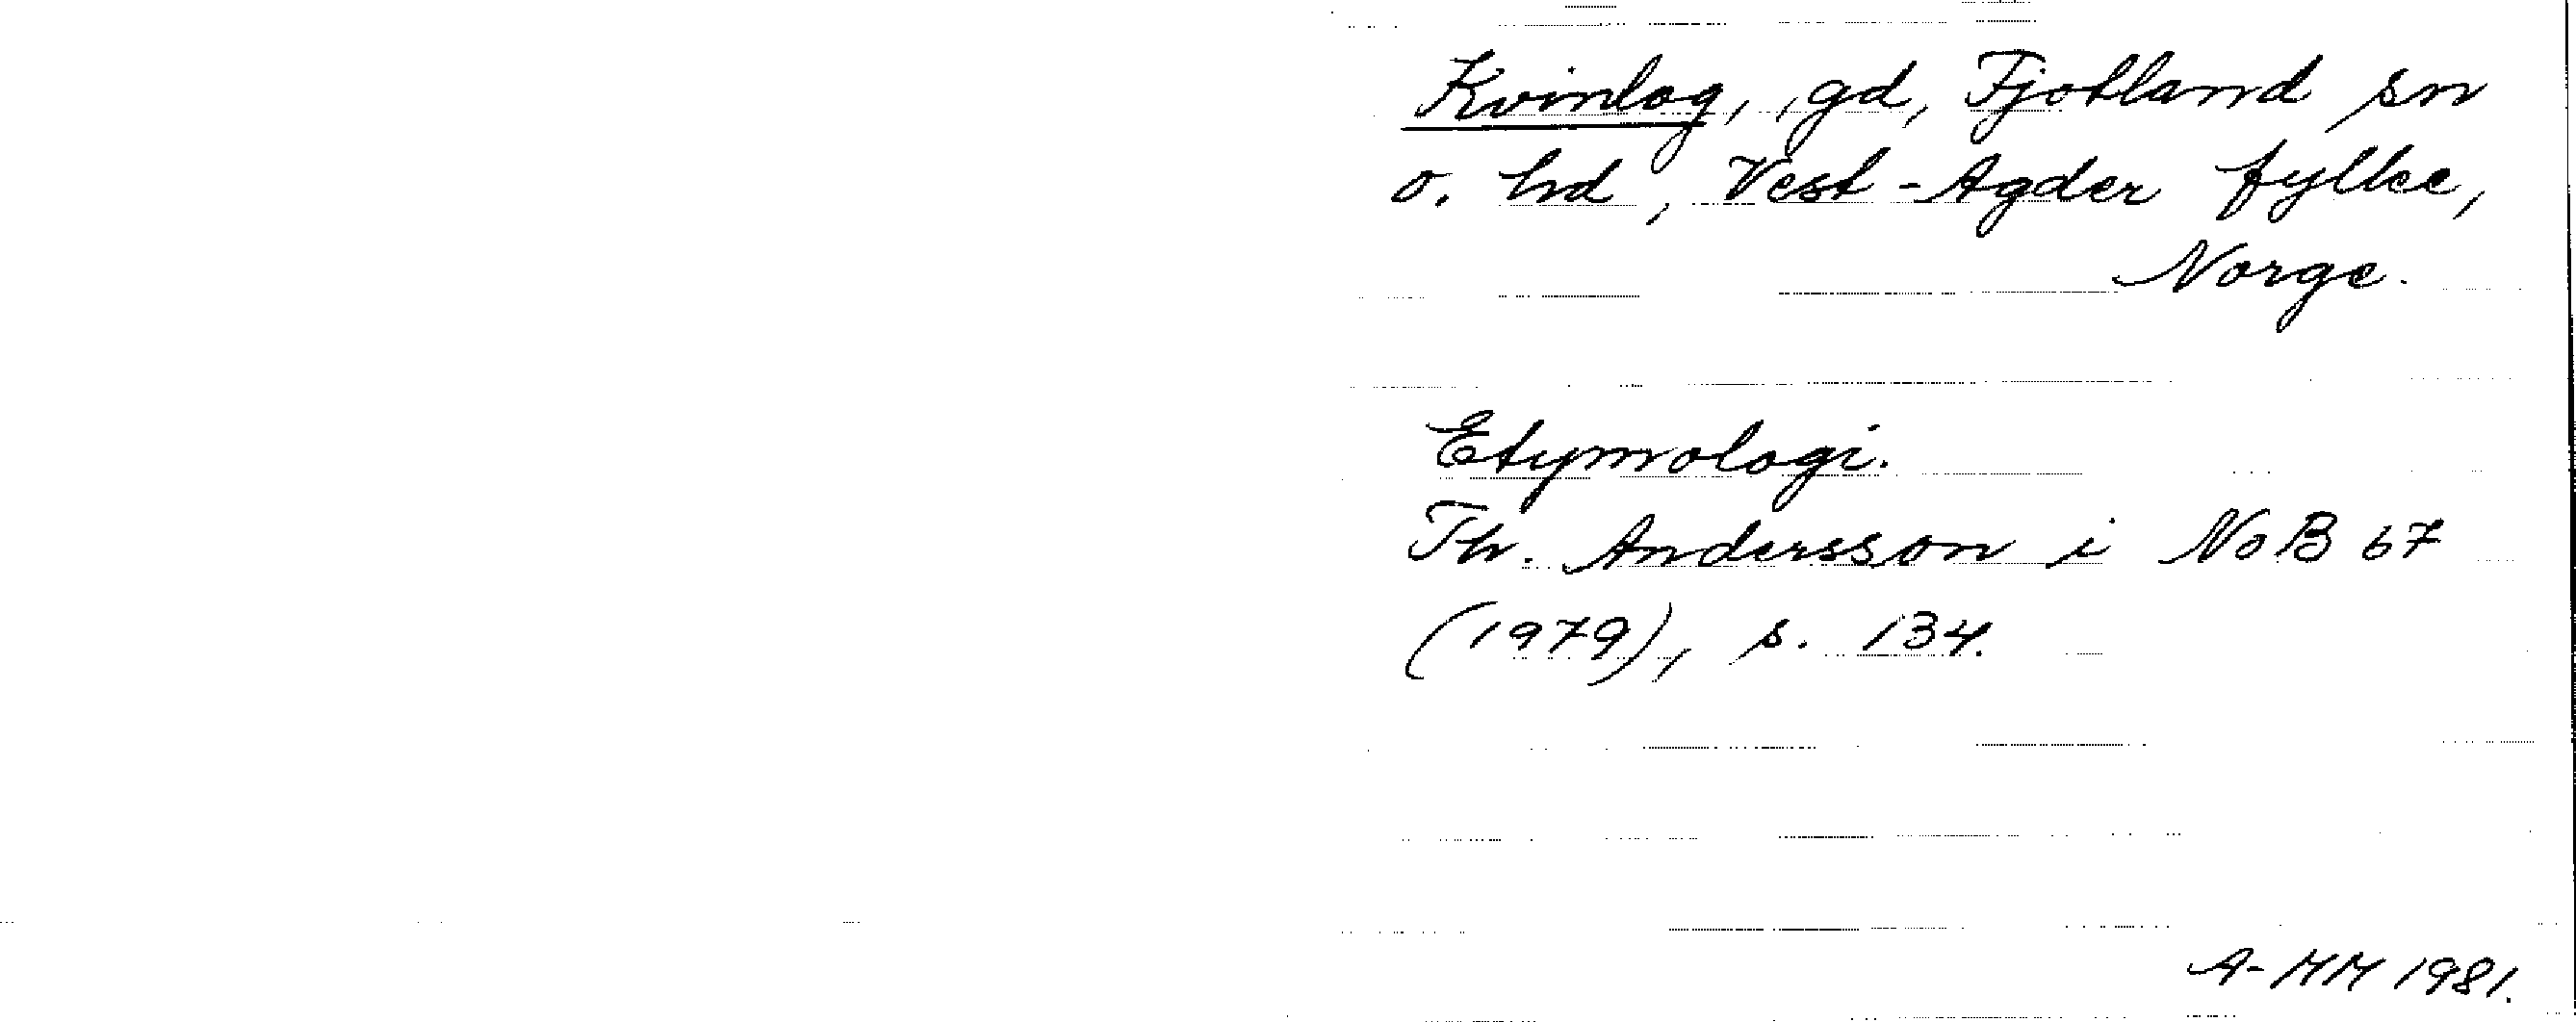 Kvinlog, gd, Fjotland sn
o. hd, Vest-Agder fylke,
Norge.
Etymologi.
Th. Andersson i NoB 67
(1979), s. 134.
A-MM 1981.